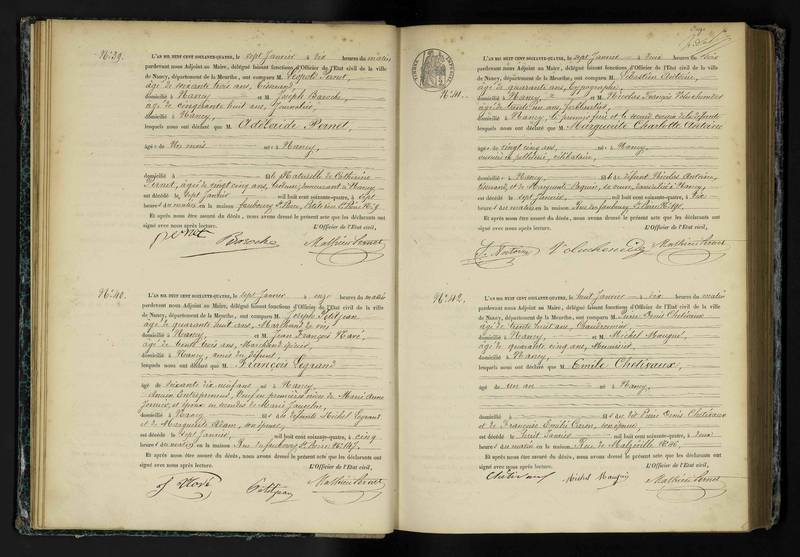 N° 39.
L'AN MIL HUIT CENT SOIXANTE-QUATRE, le sept Janvier à dix heures du matin
pardevant nous Adjoint au Maire, délégué faisant fonctions d'Officier de l'Etat civil de la ville
de Nancy, département de la Meurthe, ont comparu M. Léopold Pernet,
âgé de soixante trois ans, Tisserand,
domicilié à Nancy, et M. Joseph Baroche,
âgé de cinquante huit ans, Journalier,
domicilié à Nancy,
lesquels nous ont déclaré que M. Adélaïde Pernet,
âgée de mois né à Nancy,
domicilié à fille Naturelle de Catherine
Pernet, âgée de vingt cinq ans, demeurant à Nancy
est décédé le sept Janvier, mil huit cent soixante-quatre, à sept
heures du matin en la maison faubourg St Pierre,
Et après nous être assuré du décès, nous avons dressé le présent acte que les déclarants ont
signé avec nous après lecture. L'Officier de l'Etat civil,
pernet Baroche
N° 40.
L'AN MIL HUIT CENT SOIXANTE-QUATRE, le sept Janvier à onze heures du matin
pardevant nous Adjoint au Maire, délégué faisant fonctions d'Officier de l'Etat civil de la ville
de Nancy, département de la Meurthe, ont comparu M. Joseph Petitjean
âgé de quarante huit ans, Marchand de vins
domicilié à Nancy, et M. Jean François
âgé de trente trois ans, Marchand épicier,
domicilié à Nancy, amis du défunt,
lesquels nous ont déclaré que M. François Legrand
âgé de soixante dix neuf ans né à Nancy,
Ancien Entrepreneur, Veuf en premières noces de Marie Anne
et époux en secondes de Marie
domicilié à Nancy fils des défunts Michel Legrand
et de Marguerite son épouse,
est décédé le sept Janvier, mil huit cent soixante-quatre, à cinq
heures du matin en la maison Rue du faubourg St Pierre N° 147.
Et après nous être assuré du décès, nous avons dressé le présent acte que les déclarants ont
signé avec nous après lecture. L'Officier de l'Etat civil,
Petitjean
N° 41.
L'AN MIL HUIT CENT SOIXANTE-QUATRE, le sept Janvier à deux heures du soir
pardevant nous Adjoint au Maire, délégué faisant fonctions d'Officier de l'Etat civil de la ville
de Nancy, département de la Meurthe, ont comparu M. Sébastien Antoine,
âgé de quarante ans, Typographe,
domicilié à Nancy, et M. Nicolas François
âgé de trente un ans,
domicilié à Nancy, le premier frère et le second cousin de la défunte
lesquels nous ont déclaré que M. Marguerite Charlotte Antoine
âgée de vingt cinq ans, née à Nancy,
ouvrière célibataire,
domicilié à Nancy, fille de défunt Nicolas Antoine,
Tisserand, et de Marguerite sa veuve, domiciliée à Nancy,
est décédé le sept Janvier, mil huit cent soixante-quatre, à dix
heures du matin en la maison Rue du faubourg St Pierre
Et après nous être assuré du décès, nous avons dressé le présent acte que les déclarants ont
signé avec nous après lecture. L'Officier de l'Etat civil,
Antoine
N° 42.
L'AN MIL HUIT CENT SOIXANTE-QUATRE, le huit Janvier à dix heures du matin
pardevant nous Adjoint au Maire, délégué faisant fonctions d'Officier de l'Etat civil de la ville
de Nancy, département de la Meurthe, ont comparu M. Pierre Denis Chetivaux
âgé de trente huit ans, Chaudronnier,
domicilié à Nancy, et M. Michel Mougin,
âgé de quarante cinq ans, Menuisier,
domicilié à Nancy,
lesquels nous ont déclaré que M. Emile Chetivaux,
âgé de un an né à Nancy,
domicilié à fils du dit Pierre Denis Chetivaux
et de Françoise Emilie son épouse,
est décédé le huit Janvier mil huit cent soixante-quatre, à deux
heures du matin en la maison Rue de Malzéville
Et après nous être assuré du décès, nous avons dressé le présent acte que les déclarants ont
signé avec nous après lecture. L'Officier de l'Etat civil,
Chetivaux Michel Mougin